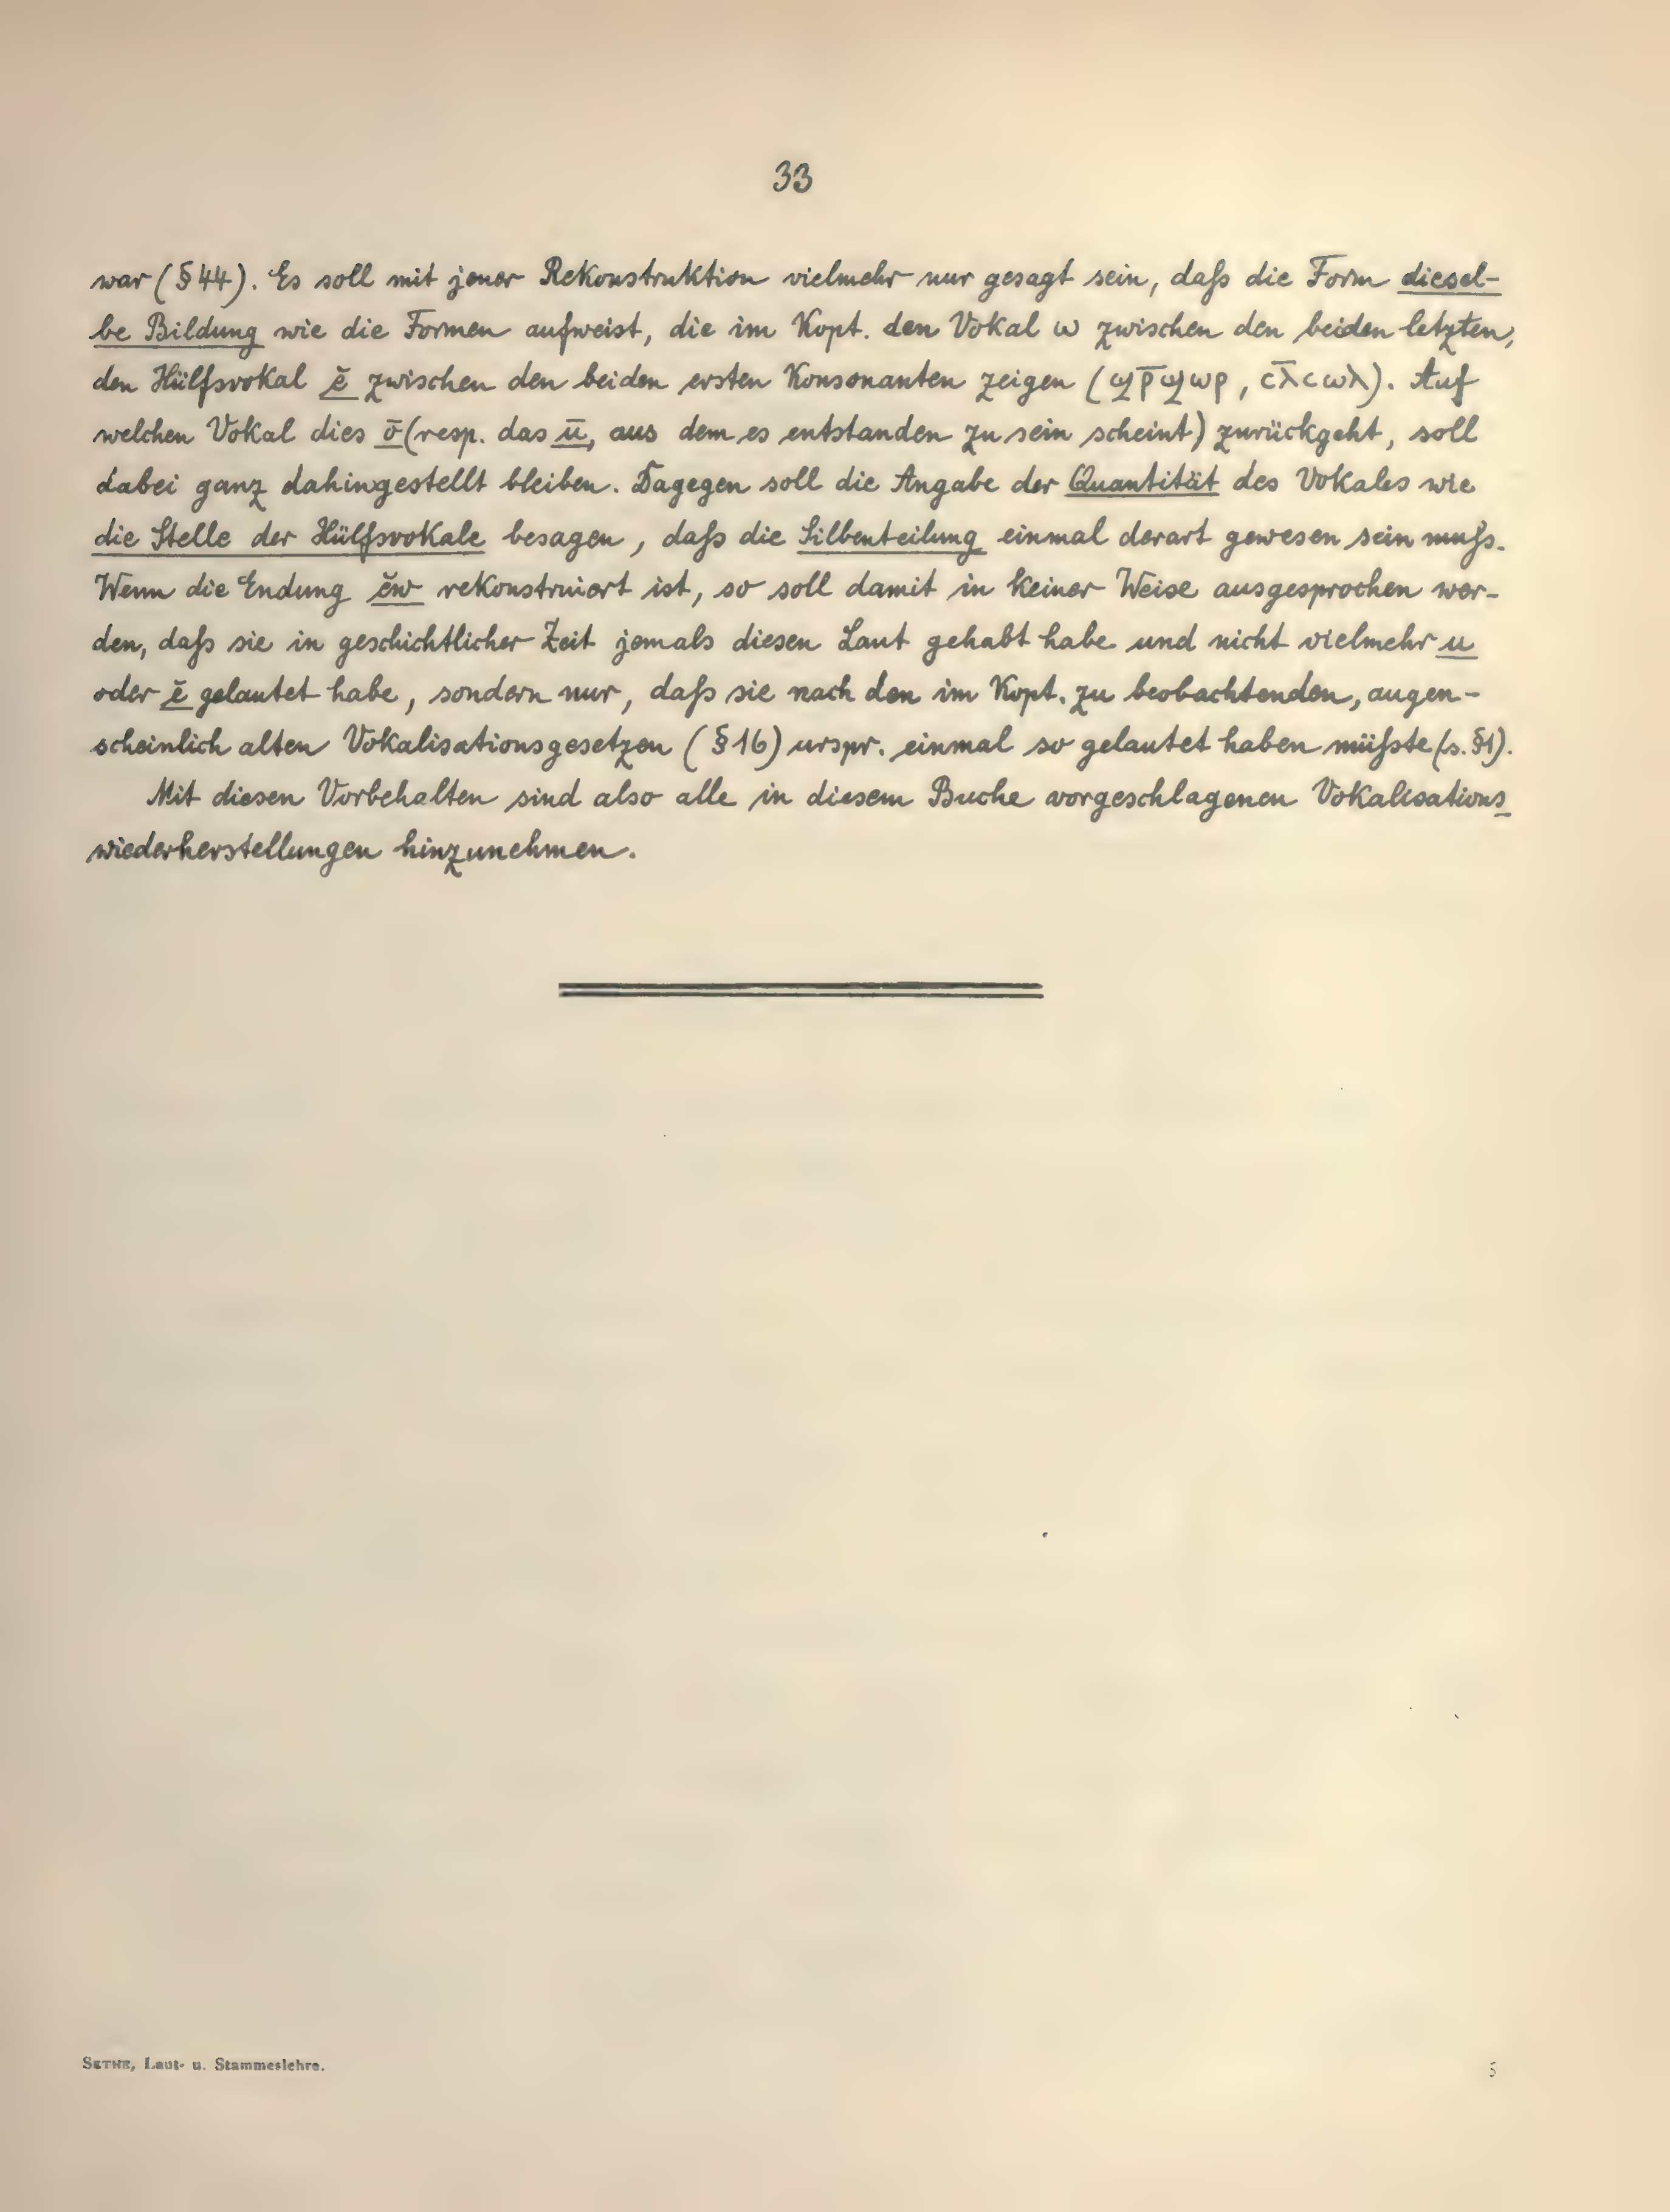 33
war (§ 44). Es soll mit jener Rekonstruktion vielmehr nur gesagt sein, daß die Form diesel-
be Bildung wie die Formen aufweist, die im Kopt. den Vokal ⲱ zwischen den beiden letzten,
den Hülfsvokal ĕ zwischen den beiden ersten Konsonanten zeigen (ϣⲣ̄ϣⲱⲣ, ⲥⲗ̄ⲥⲱⲗ). Auf
welchen Vokal dies ō (resp. das ū, aus dem es entstanden zu sein scheint) zurückgeht, soll
dabei ganz dahingestellt bleiben. Dagegen soll die Angabe der Quantität des Vokales wie
die Stelle der Hülfsvokale besagen, daß die Silbenteilung einmal derart gewesen sein muß.
Wenn die Endung ĕw rekonstruiert ist, so soll damit in keiner Weise ausgesprochen wer-
den, daß sie in geschichtlicher Zeit jemals diesen Laut gehabt habe und nicht vielmehr u
oder ĕ gelautet habe, sondern nur, daß sie nach den im Kopt. zu beobachtenden, augen-
scheinlich alten Vokalisationsgesetzen (§ 16) urspr. einmal so gelautet haben müßte (s. §1).
Mit diesen Vorbehalten sind also alle in diesem Buche vorgeschlagenen Vokalisations-
wiederherstellungen hinzunehmen.
SETHE, Laut- u. Stammeslehre.
5